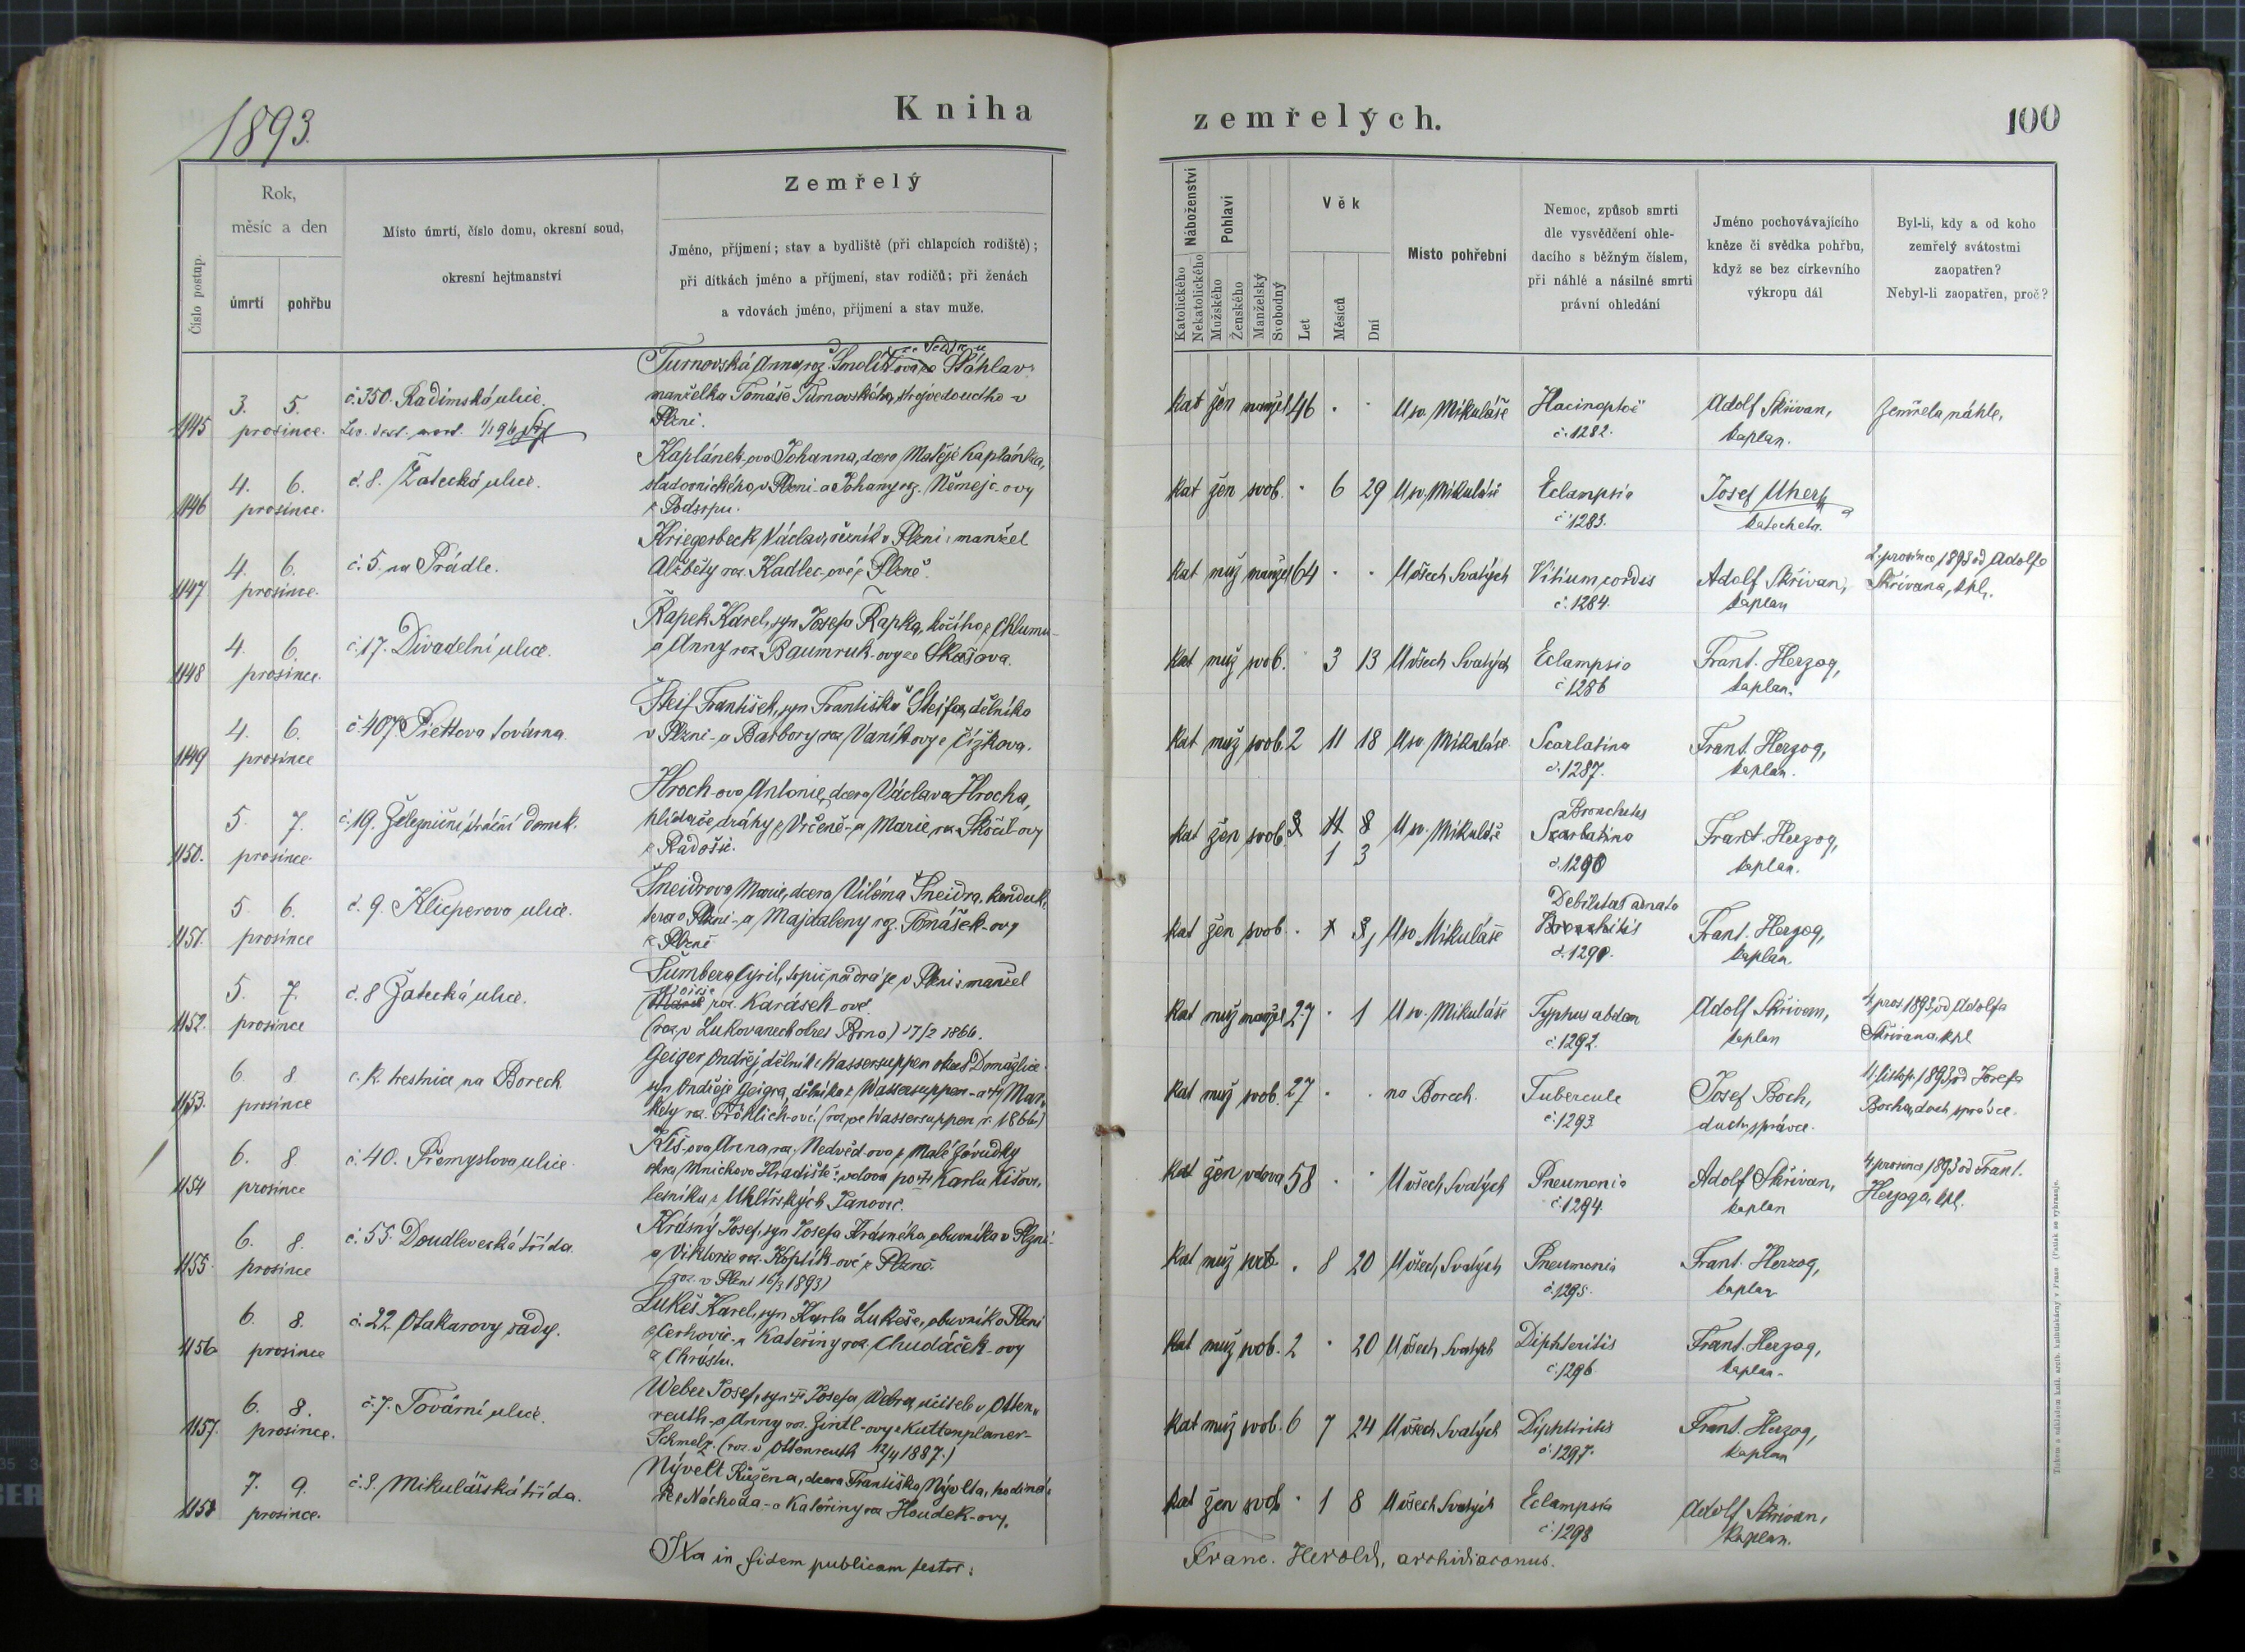 1893.
Kniha
zemřelých.
100
Číslo postup.
Rok,
měsíc a den
úmrtí
pohřbu
Místo úmrtí, číslo domu, okresní soud,
okresní hejtmanství
Zemřelý
Jméno, příjmení; stav a bydliště (při chlapcích rodiště);
při dítkách jméno a příjmení, stav rodičů; při ženách
a vdovách jméno, příjmení a stav muže.
Náboženství
Katolického
Nekatolického
Pohlaví
Mužského
Ženského
Manželský
Svobodný
Věk
Let
Měsíců
Dní
Místo pohřební
Nemoc, způsob smrti
dle vysvědčení ohle-
dacího s běžným číslem,
při náhlé a násilné smrti
právní ohledání
Jméno pochovávajícího
kněze či svědka pohřbu,
když se bez církevního
výkropu dál
Byl-li, kdy a od koho
zemřelý svátostmi
zaopatřen?
Nebyl-li zaopatřen, proč?
1145
3. 5.
prosince.
č. 350. Radimská ulice.
Turnovská Anna, roz. Smolík
manželka Tomáše Turnovského, strojvedoucího v
Plzni.
kat žen manžel 46 . . U sv. Mikuláše
Hacinoptoë
č. 1282.
Adolf Skřivan,
kaplan.
Zemřela náhle.
1146
4. 6.
prosince.
č. 8. Žatecká ulice.
Kaplánek-ova Johanna, dcera Matěje Kaplánka,
sladovnického v Plzni - a Johany roz. Němejc-ovy
z Podsrpu.
kat žen svob. . 6 29 U sv. Mikuláše
Eclampsia
č. 1283.
Josef Uherk
katecheta.
1147
4. 6.
prosince.
č. 5. na Prádle.
Kriegerbeck Václav, řezník v Plzni: manžel
Alžběty roz. Kadlec-ové z Plzně.
kat muž manžel 64 . . U všech Svatých
Vitium cordis
č. 1284.
Adolf Skřivan,
kaplan
2. prosince 1893 od Adolfa
Skřivana, kpl.
1148
4. 6.
prosince.
č. 17. Divadelní ulice.
Řapek Karel, syn Josefa Řapka, kočího z Chlumu -
a Anny roz. Baumruk-ovy ze Skašova.
kat muž svob. . 3 13 U všech Svatých
Eclampsia
č. 1286
Frant. Herzog,
kaplan.
1149
4. 6.
prosince
č. 407. Piettova továrna.
Šteif František, syn Františka Šteifa, dělníka
v Plzni - a Barbory roz. Vaník-ovy z Čížkova.
kat muž svob. 2 11 18 U sv. Mikuláše
Scarlatina
č. 1287.
Frant. Herzog,
kaplan.
1150.
5. 7.
prosince.
č. 19. Železniční strážní domek.
Hroch-ova Antonie, dcera Václava Hrocha,
hlídače dráhy z Vrčeně - a Marie roz. Skočil-ovy
z Radošic.
kat žen svob. 3 11 8 U sv. Mikuláše
1 3
Bronchitis
Scarlatina
č. 1290
Frant. Herzog,
kaplan.
1151.
5 6.
prosince
č. 9. Klicperova ulice.
Šneidrova Marie, dcera Viléma Šneidra, konduk-
tera v Plzni - a Majdaleny roz. Tomášek-ovy
z Plzně
kat žen svob. . U sv. Mikuláše
Debilitas adnata
Bronchitis
č. 1290.
Frant. Herzog,
kaplan.
1152.
5. 7.
prosince
č. 8 Žatecká ulice.
Šumbera Cyril, topič na dráze v Plzni: manžel
roz. Karásek-ové.
(roz. v Lukovanech okres Brno) 17/2 1866.
kat muž manžel 27 . 1 U sv. Mikuláše
Typhus abdom
č. 1292.
Adolf Skřivan,
kaplan
4. pros. 1893, od Adolfa
Skřivana, kpl
1153.
6. 8
prosince
c. k. trestnice na Borech
Geiger Ondřej, dělník z Wassersuppen okres Domažlice
syn Ondřeje Geigra, dělníka z Wassersuppen - a Mar-
kety roz. Fröhlich-ové. (roz. ve Wassersuppen r. 1866)
kat muž svob. 27 . . na Borech.
Tubercule
č. 1293.
Josef Boch,
duch. správce.
11. listop. 1893, od Josefa
Bocha, duch. správce.
1154
6. 8.
prosince
č. 40. Přemyslova ulice.
Kiš-ova Anna roz. Nedvěd-ova z Malé
okres Mnichovo Hradiště: vdova po Karlu Kišovi,
lesníku z Uhlířských Janovic.
kat žen vdova 58 . . U všech Svatých
Pneumonia
č. 1294.
Adolf Skřivan,
kaplan
4. prosince 1893 od Frant.
Herzoga, kpl.
1155.
6. 8.
prosince
č. 55. Doudlevecká třída.
Krásný Josef, syn Josefa Krásného, obuvníka v Plzni -
a Viktorie roz. Koptík-ové z Plzně.
(roz. v Plzni 16/3 1893)
kat muž svob. . 8 20 U všech Svatých
Pneumonia
č. 1295.
Frant. Herzog,
kaplan
1156
6. 8.
prosince
č. 22 Otakarovy sady.
Lukeš Karel, syn Karla Lukeše, obuvníka v Plzni
z Cerhovic - a Kateřiny roz. Chudáček-ovy
z Chrástu.
kat muž svob. 2 . 20 U všech Svatých
Diphteritis
č. 1296
Frant. Herzog,
kaplan.
1157.
6. 8.
prosince.
č. 7. Tovární ulice.
Weber Josef, syn Josefa Webra, učitele v Otten-
reuth - a Anny roz. Gintl-ovy z Kuttenplaner-
Schmelz. (roz. v Ottenreuth 12/4 1887.)
kat muž svob. 6 7 24 U všech Svatých
Diphtiritis
č. 1297.
Frant. Herzog,
kaplan
1158
7. 9.
prosince.
č. 8. Mikulášská třída.
Nývelt Růžena, dcera Františka Nývlta, hodiná-
ře z Náchoda - a Kateřiny roz. Houdek-ovy.
kat žen svob . 1 8 U všech Svatých
Eclampsia
č. 1298
Adolf Skřivan,
kaplan.
Ita in fidem publicam testor:
Franc. Herold, archidiaconus.